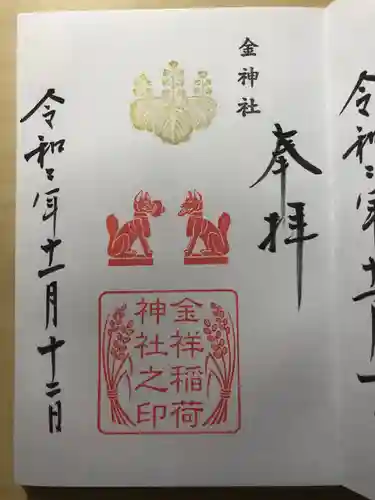 金神社
奉拝
金祥稲荷
神社之印
令和二年十一月十二日
令和二年十一月十